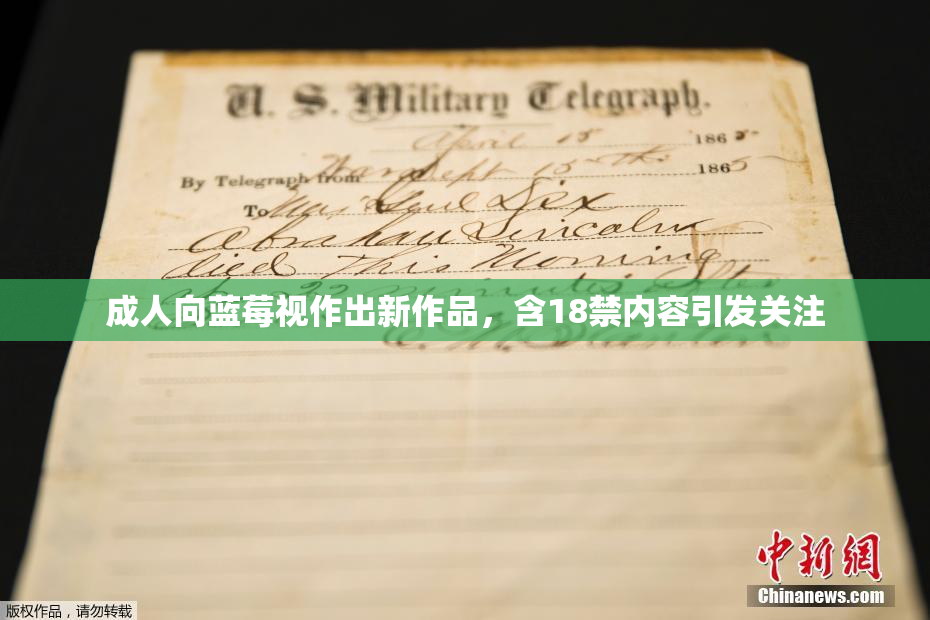 U. S. Military Telegraph.
April 15 1865
By Telegraph from War Dept 15th 1865
To Maj Genl Dix
Abraham Lincoln
died This Morning
22 minutes after
成人向蓝莓视作出新作品，含18禁内容引发关注
E. M. Stanton
中新网
Chinanews.com
版权作品，请勿转载